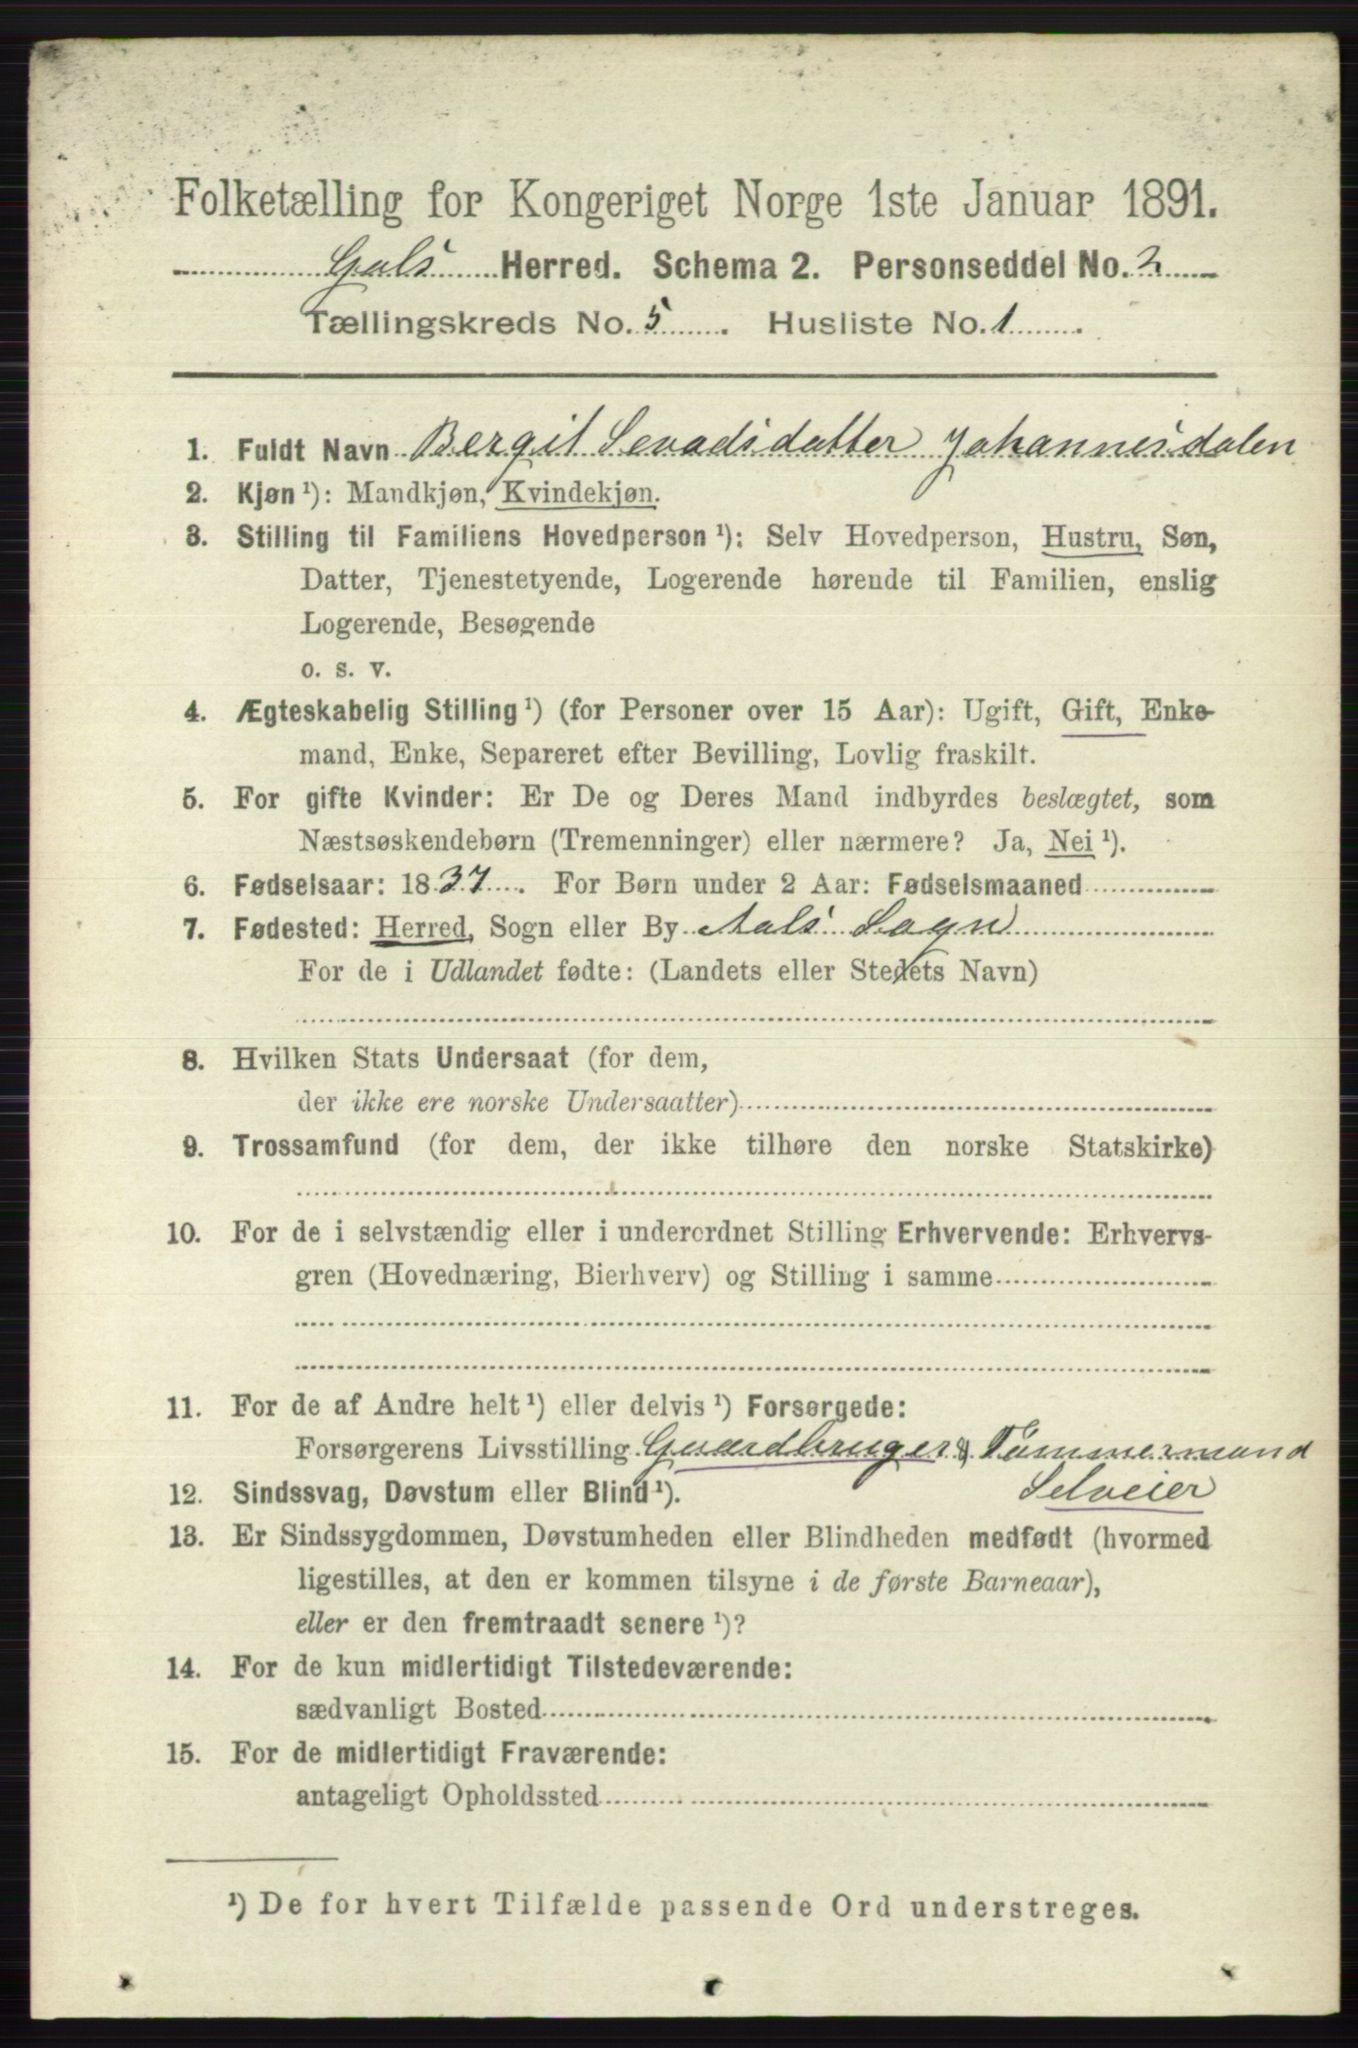 Folketælling for Kongeriget Norge 1ste Januar 1891.
Gols Herred. Schema 2. Personseddel No. 2
Tællingskreds No. 5. Husliste No. 1.
1. Fuldt Navn Bergit Sevadsdatter Johannesdalen
2. Kjøn ¹): Mandkjøn, Kvindekjøn.
3. Stilling til Familiens Hovedperson ¹): Selv Hovedperson, Hustru, Søn,
Datter, Tjenestetyende, Logerende hørende til Familien, enslig
Logerende, Besøgende
o. s. v.
4. Ægteskabelig Stilling ¹) (for Personer over 15 Aar): Ugift, Gift, Enke-
mand, Enke, Separeret efter Bevilling, Lovlig fraskilt.
5. For gifte Kvinder: Er De og Deres Mand indbyrdes beslægtet, som
Næstsøskendebørn (Tremenninger) eller nærmere? Ja, Nei ¹).
6. Fødselsaar: 1837. For Børn under 2 Aar: Fødselsmaaned
7. Fødested: Herred, Sogn eller By Aals Sogn
For de i Udlandet fødte: (Landets eller Stedets Navn)
8. Hvilken Stats Undersaat (for dem,
der ikke ere norske Undersaatter)
9. Trossamfund (for dem, der ikke tilhøre den norske Statskirke)
10. For de i selvstændig eller i underordnet Stilling Erhvervende: Erhvervs-
gren (Hovednæring, Bierhverv) og Stilling i samme
11. For de af Andre helt ¹) eller delvis ¹) Forsørgede:
Forsørgerens Livsstilling Gaardbruger & Tømmermand
Selveier
12. Sindssvag, Døvstum eller Blind ¹).
13. Er Sindssygdommen, Døvstumheden eller Blindheden medfødt (hvormed
ligestilles, at den er kommen tilsyne i de første Barneaar),
eller er den fremtraadt senere ¹)?
14. For de kun midlertidigt Tilstedeværende:
sædvanligt Bosted
15. For de midlertidigt Fraværende:
antageligt Opholdssted
¹) De for hvert Tilfælde passende Ord understreges.